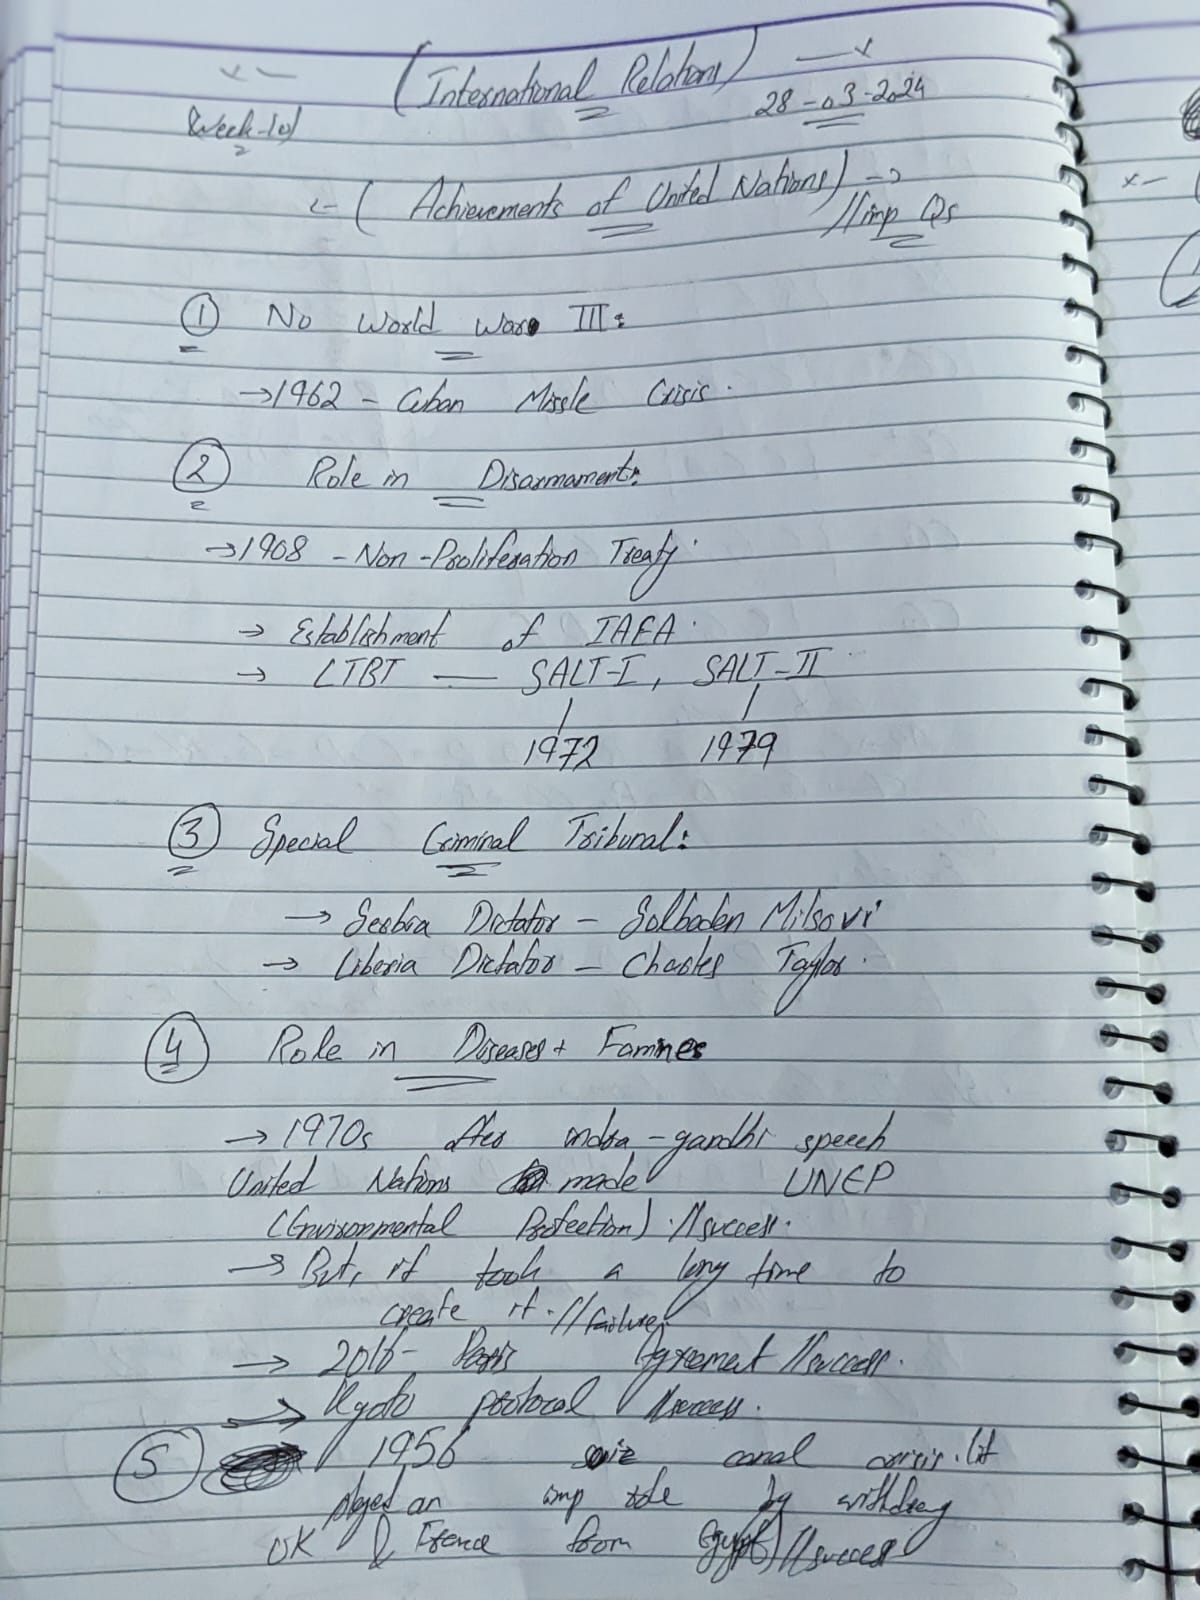 (International Relations)
28-03-2024
Week-10
(Achievements of United Nations)
//imp Qs
① No World War III:
→1962 - Cuban Missle Crisis.
② Role in Disarmament:
→1968 - Non-Proliferation Treaty.
→ Establishment of IAEA.
→ LTBT — SALT-I, SALT-II
1972 1979
③ Special Criminal Tribunal:
→ Serbia Dictator - Solbaden Milsovi
→ Liberia Dictator - Charles Taylor.
④ Role in Diseases + Famines
→ 1970s After indra-gandhi speech
United Nations made UNEP
(Environmental Protection) //success.
→ But, it took a long time to
create it. //failure
→ 2016- Paris Agreement //success.
→ Kyoto protocol //success.
⑤ 1956 canal crisis. (it
played an imp role by withdrawing
UK & France from Egypt) //success